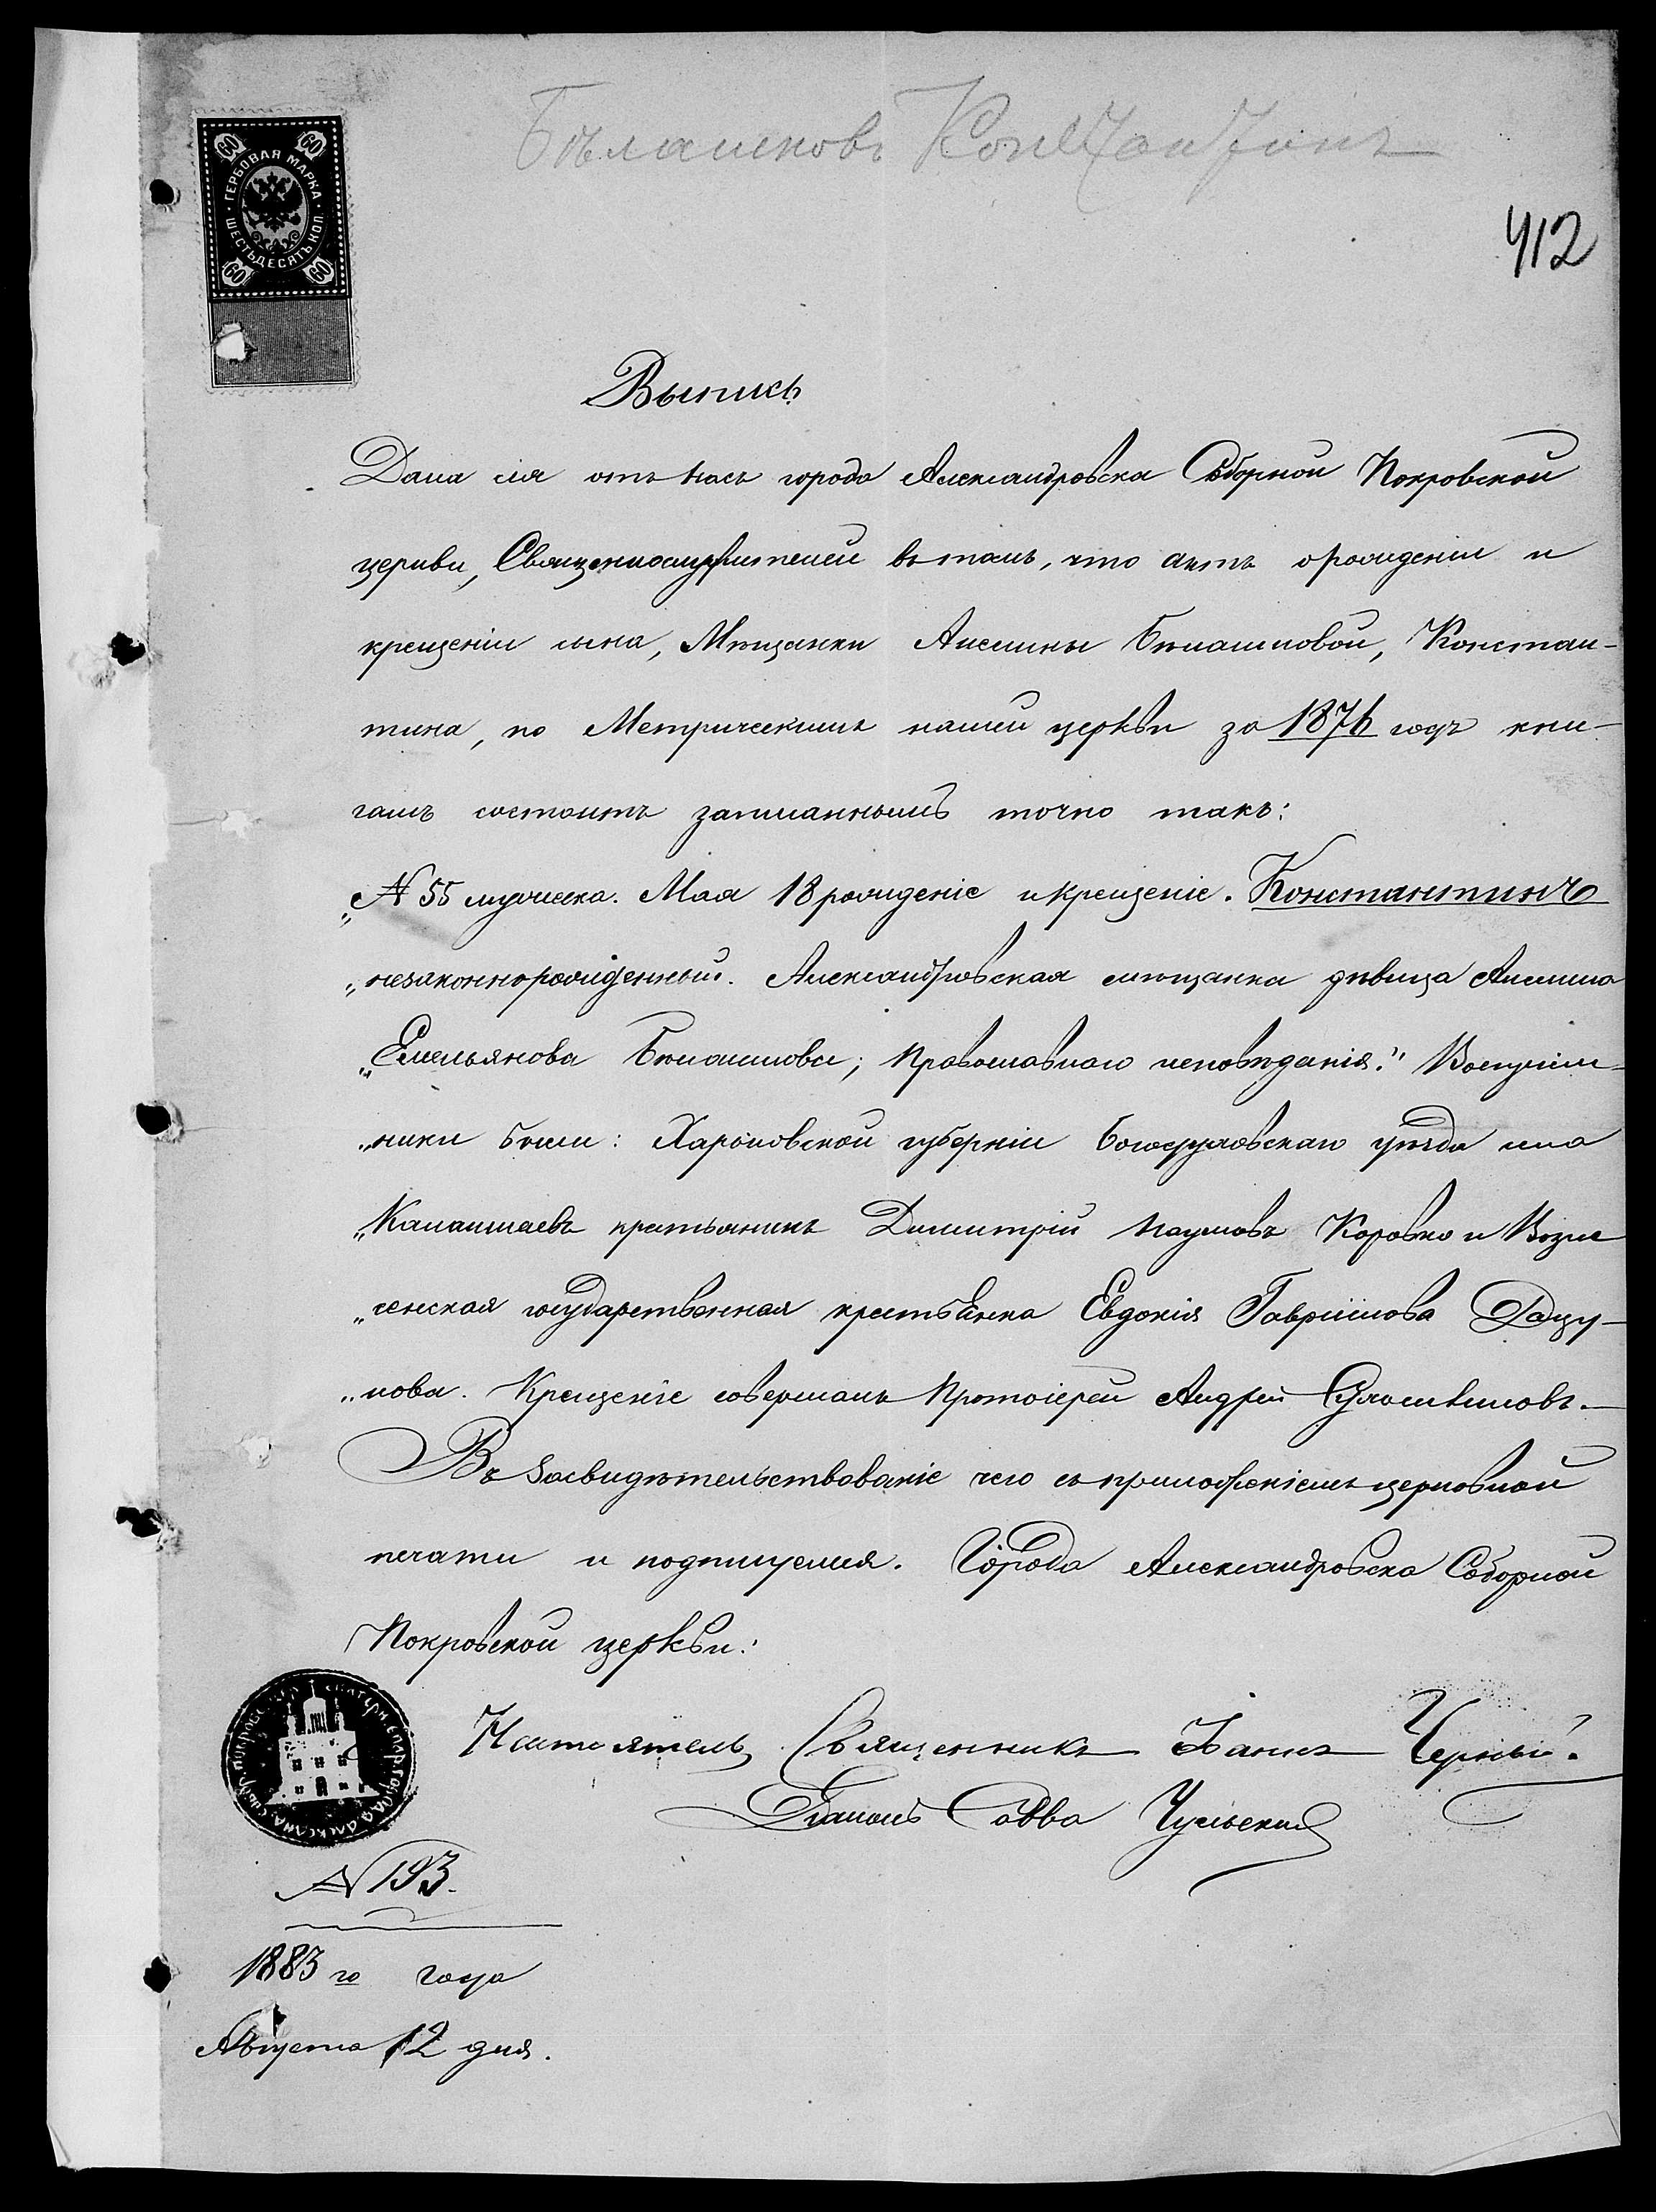 Бѣлашковъ Константинъ
412
60 60
ГЕРБОВАЯ МАРКА
ШЕСТЬДЕСЯТЪ КОП.
60 60
Выпись
Дана сія отъ насъ города Александровска Соборной Покровской
церкви, Священнослужителей въ томъ, что актъ о рожденіи и
крещеніи сына, Мѣщанки Анны Бѣлашковой, Констан-
тина, по Метрическимъ нашей церкви за 1876 годъ кни-
гамъ состоитъ записаннымъ точно такъ:
„№ 55 мужеска. Мая 18 рожденіе и крещеніе. Константинъ
„незаконнорожденный. Александровская мѣщанка дѣвица
„Емельянова Бѣлашкова; Православнаго исповѣданія." Воспріем-
„ники были: Харьковской губерніи Богодуховскаго уѣзда села
„ крестьянинъ Димитрій Наумовъ Коровко и Возне
„сенская государственная крестьянка Евдокія Гавріилова Дацу-
„нова. Крещеніе совершалъ Протоіерей Андрей
Въ засвидѣтельствованіе чего съ приложеніемъ церковной
печати и подпишемся. Города Александровска Соборной
Покровской церкви:
Настоятель, Священникъ Іоаннъ Черный.
Діаконъ Савва
№ 193.
1883 го года
Августа 12 дня.